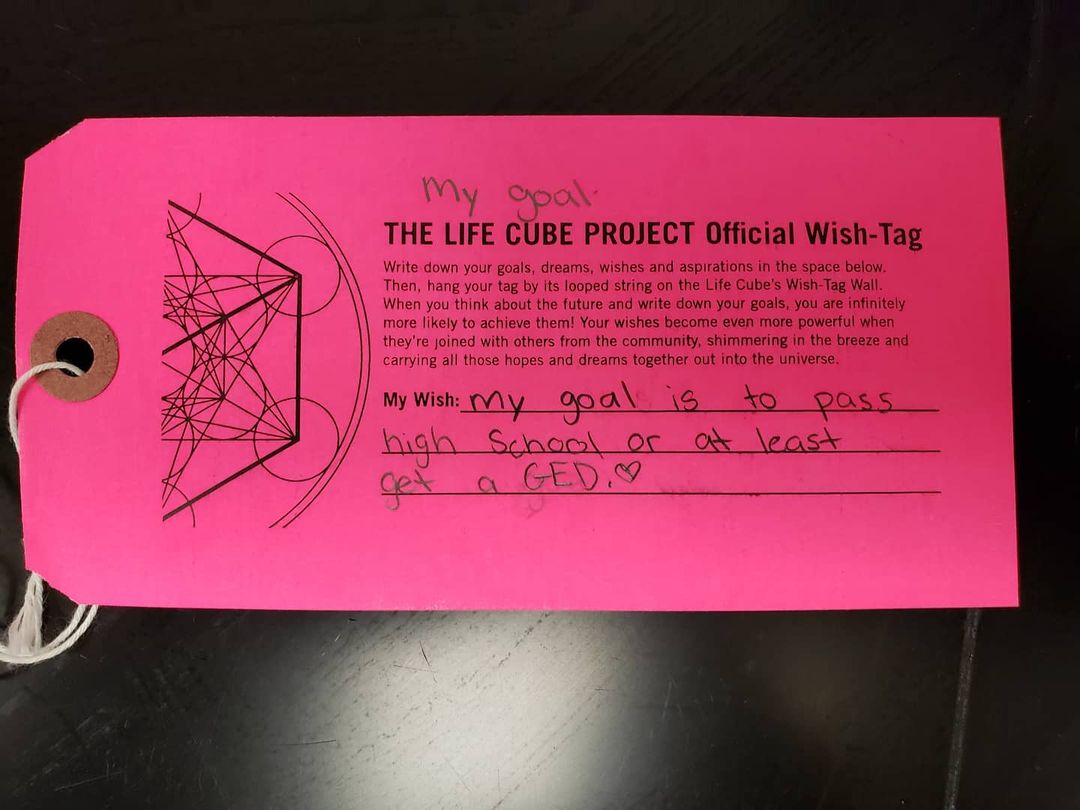 My goal.
THE LIFE CUBE PROJECT Official Wish-Tag
Write down your goals, dreams, wishes and aspirations in the space below.
Then, hang your tag by its looped string on the Life Cube's Wish-Tag Wall.
When you think about the future and write down your goals, you are infinitely
more likely to achieve them! Your wishes become even more powerful when
they're joined with others from the community, shimmering in the breeze and
carrying all those hopes and dreams together out into the universe.
My Wish: my goal is to pass
high School or at least
get a GED.♡